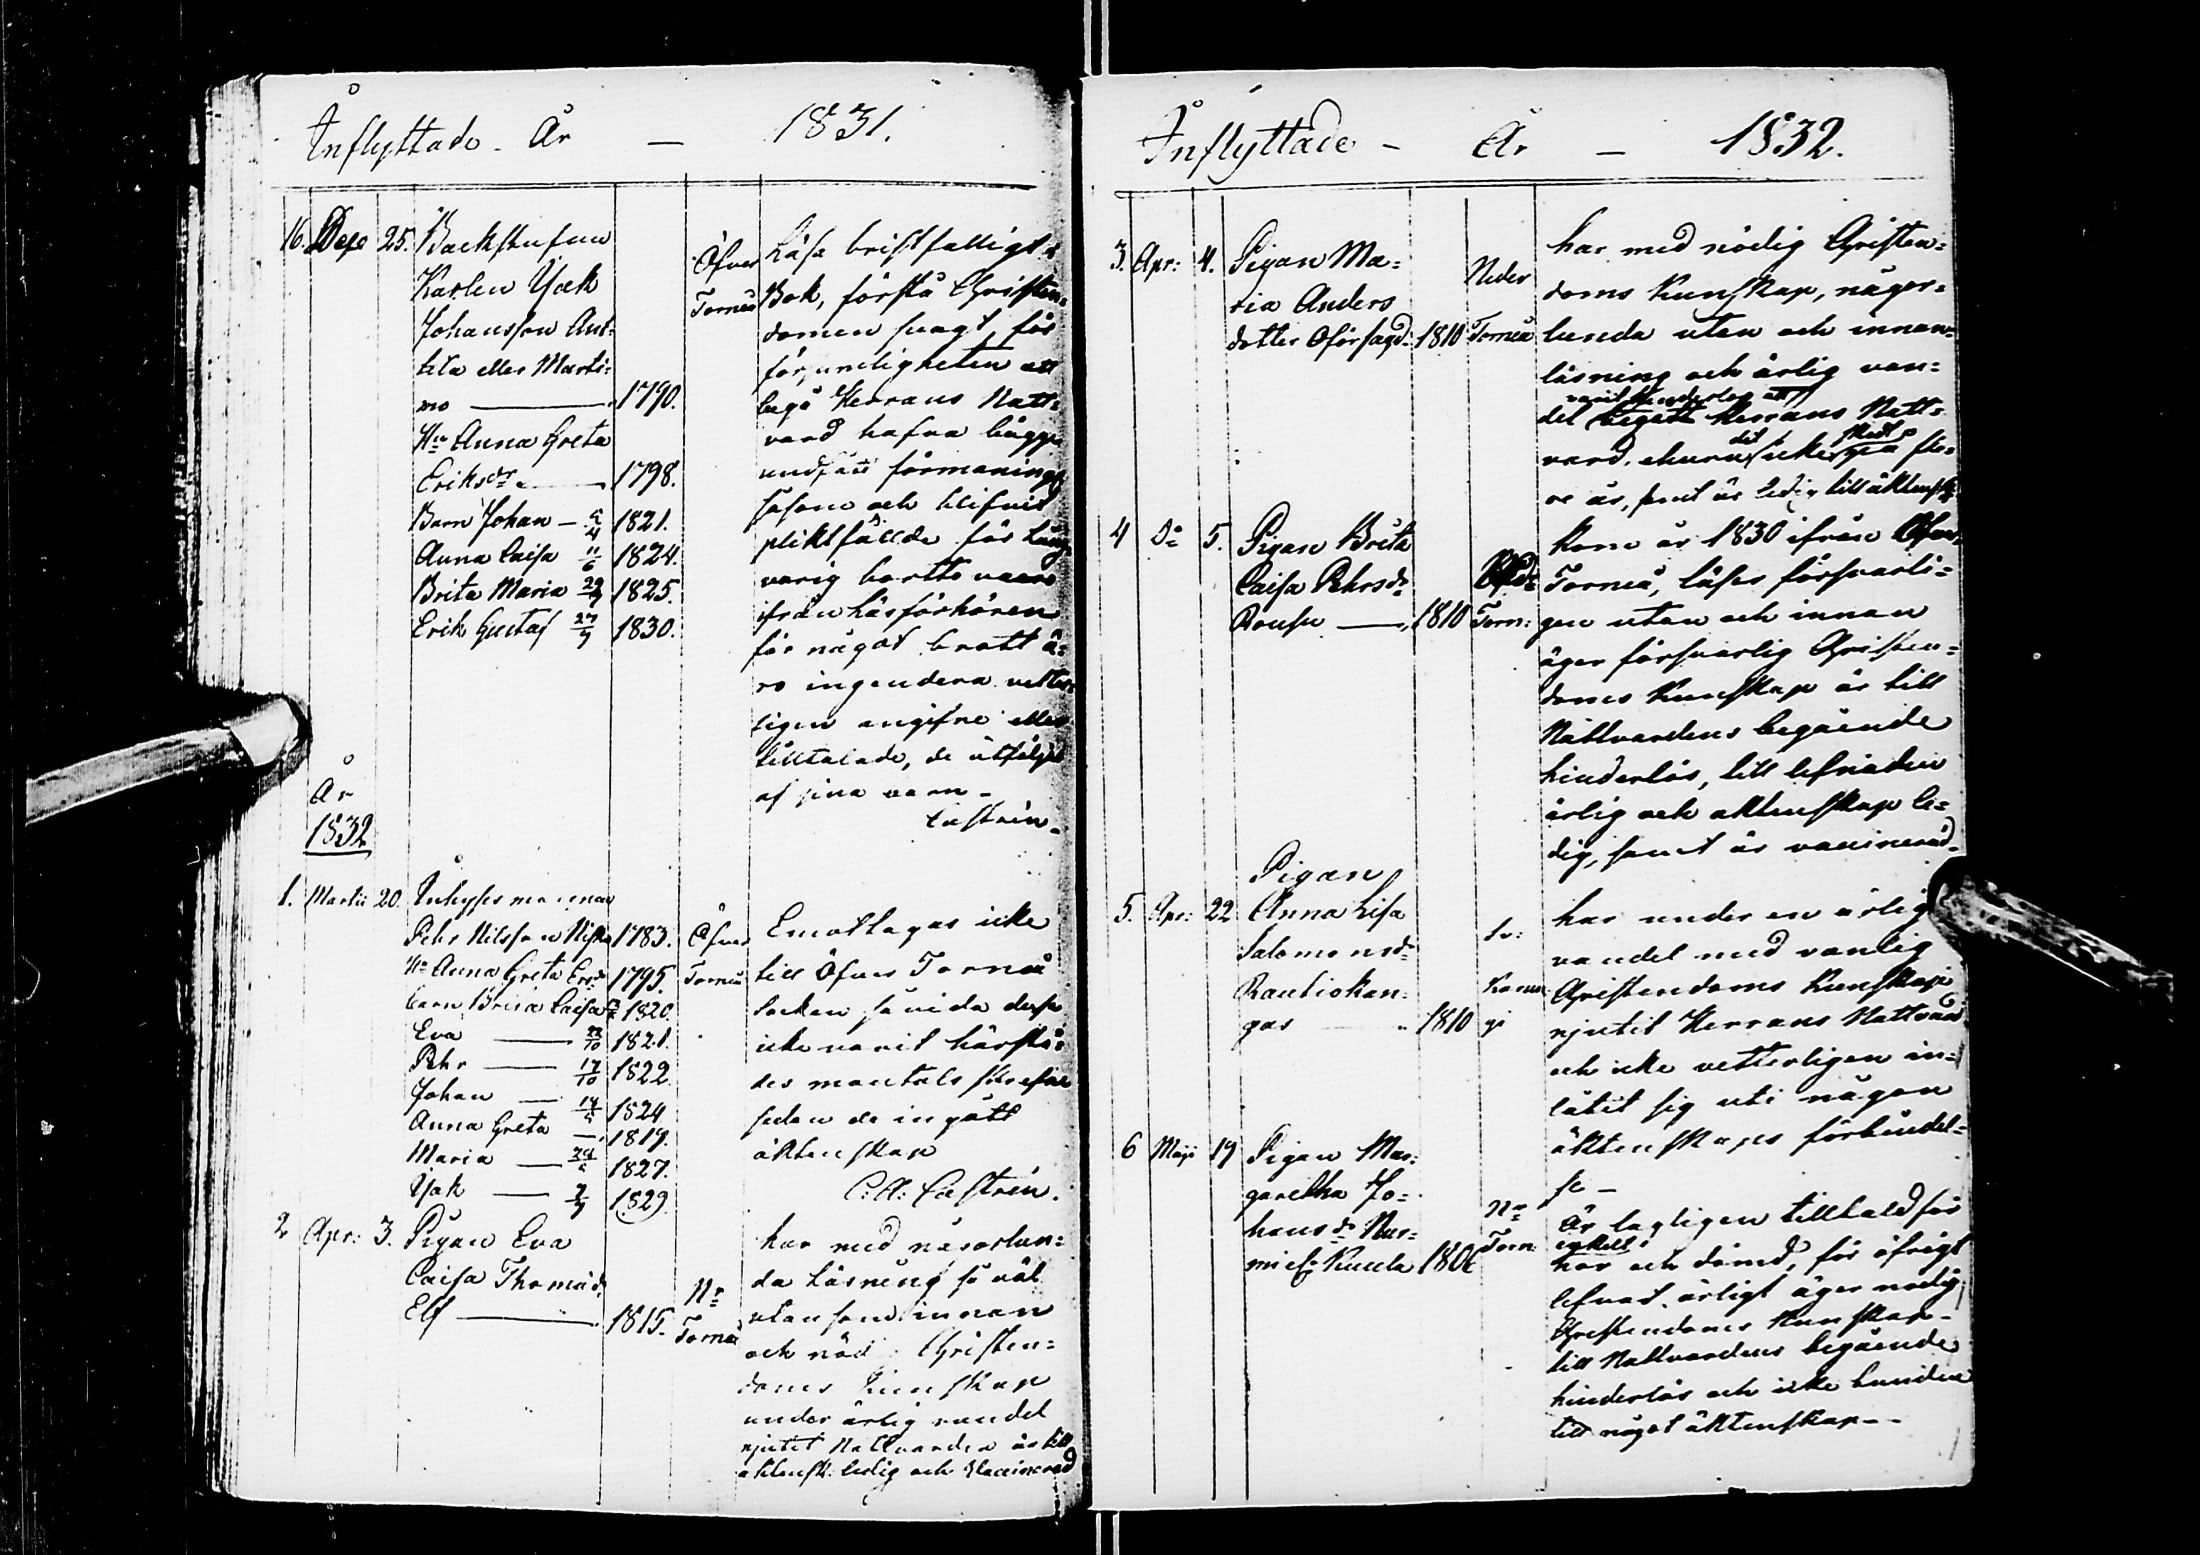 Inflyttade - År — 1831.
16. Dece 25. Backstufun
Karlen Isak
Johansson Ant-
tila eller Marti-
mo — 1790.
Hu Anna Greta
Eriksdr — 1798.
Barn Johan — 1821.
Anna Caisa 11/6 1824.
Brita Maria 1825.
Erik Gustaf 1830.
Öfver
Torneå
Läsa bristfälligt i
Bok, förstå Christen-
domen svagt, för
försumligheten att
begå Herrans Natt-
vard hafva bägge
undfått förmaningar
såsom och blifvit
pliktfällde för lång-
varig bortto varo
ifrån Läsförhören
för något brott ä-
ro ingendera vetter-
ligen angifne eller
tilltalade, de åtföljas
af sina barn -
Castrén -
År
1832
1. Martii 20. Inhysesmannen
Pehr Nilsson 1783.
Hu Anna Greta Ersdr 1795.
barn Brita Caisa 1820.
Eva — 1821.
Pehr — 17/10 1822.
Johan — 1824
Anna Greta — 1819.
Maria — 1827.
Isak — 1829.
Öfver
Torneå
Emottagas icke
till Öfver Torneå
Socken så vida desse
icke varit härstä-
des mantals skrefne
sedan de ingått
äktenskap
C: A: Castrén.
2 Apr: 3. Pigan Eva
Caisa Thomasdr
Elf — 1815.
Nr
Torneå
har med någorlun-
da Läsning så väl
utan som innan
och nöd. Christen-
doms kunskap
under ärlig vandel
njutit Nattvarden är till
äktensk. ledig och Vaccinerad
Inflyttade - År — 1832.
3. Apr: 4. Pigan Ma-
ria Anders
dotter Oförsagd: 1810
Neder
Torneå
har med nödig Christen-
doms Kunskap, någor-
lunda utan och innan-
läsning och ärlig van-
varit hinderlös att
del begått Herrans Natt-
vard, ehuru det icke skedt på fle-
re år, samt är ledig till äktensk.
4 Do 5. Pigan Brita
Caisa Pehrsdr
— 1810
Torn:
kom år 1830 ifrån Öfver
Torneå, läser försvarli-
gen utan och innan
äger försvarlig Christen-
doms Kunskap är till
Nattvardens begående
hinderlös, till lefnaden
ärlig och äktenskap le-
dig, samt är vaccinerad.
5. Apr: 22 Pigan
Anna Lisa
Salomonsdr
Rautiokan-
gas 1810
har under en ärlig
vandel med vanlig
Christendoms Kunskap
njutit Herrans Nattvard
och icke vetterligen in-
låtit sig uti någon
äktenskaps förbindel-
se —
6 Maji 19 Pigan Mar-
garetha Jo-
hansdr Nur-
mi 1806
Nr
Torn:
Är lagligen tilltald för
enkelt
hor och dömd, för öfrigt
lefvat ärligt äger nödig
Christendoms Kunskap -
till Nattvardens begående
hinderlös och icke bunden
till något äktenskap - -